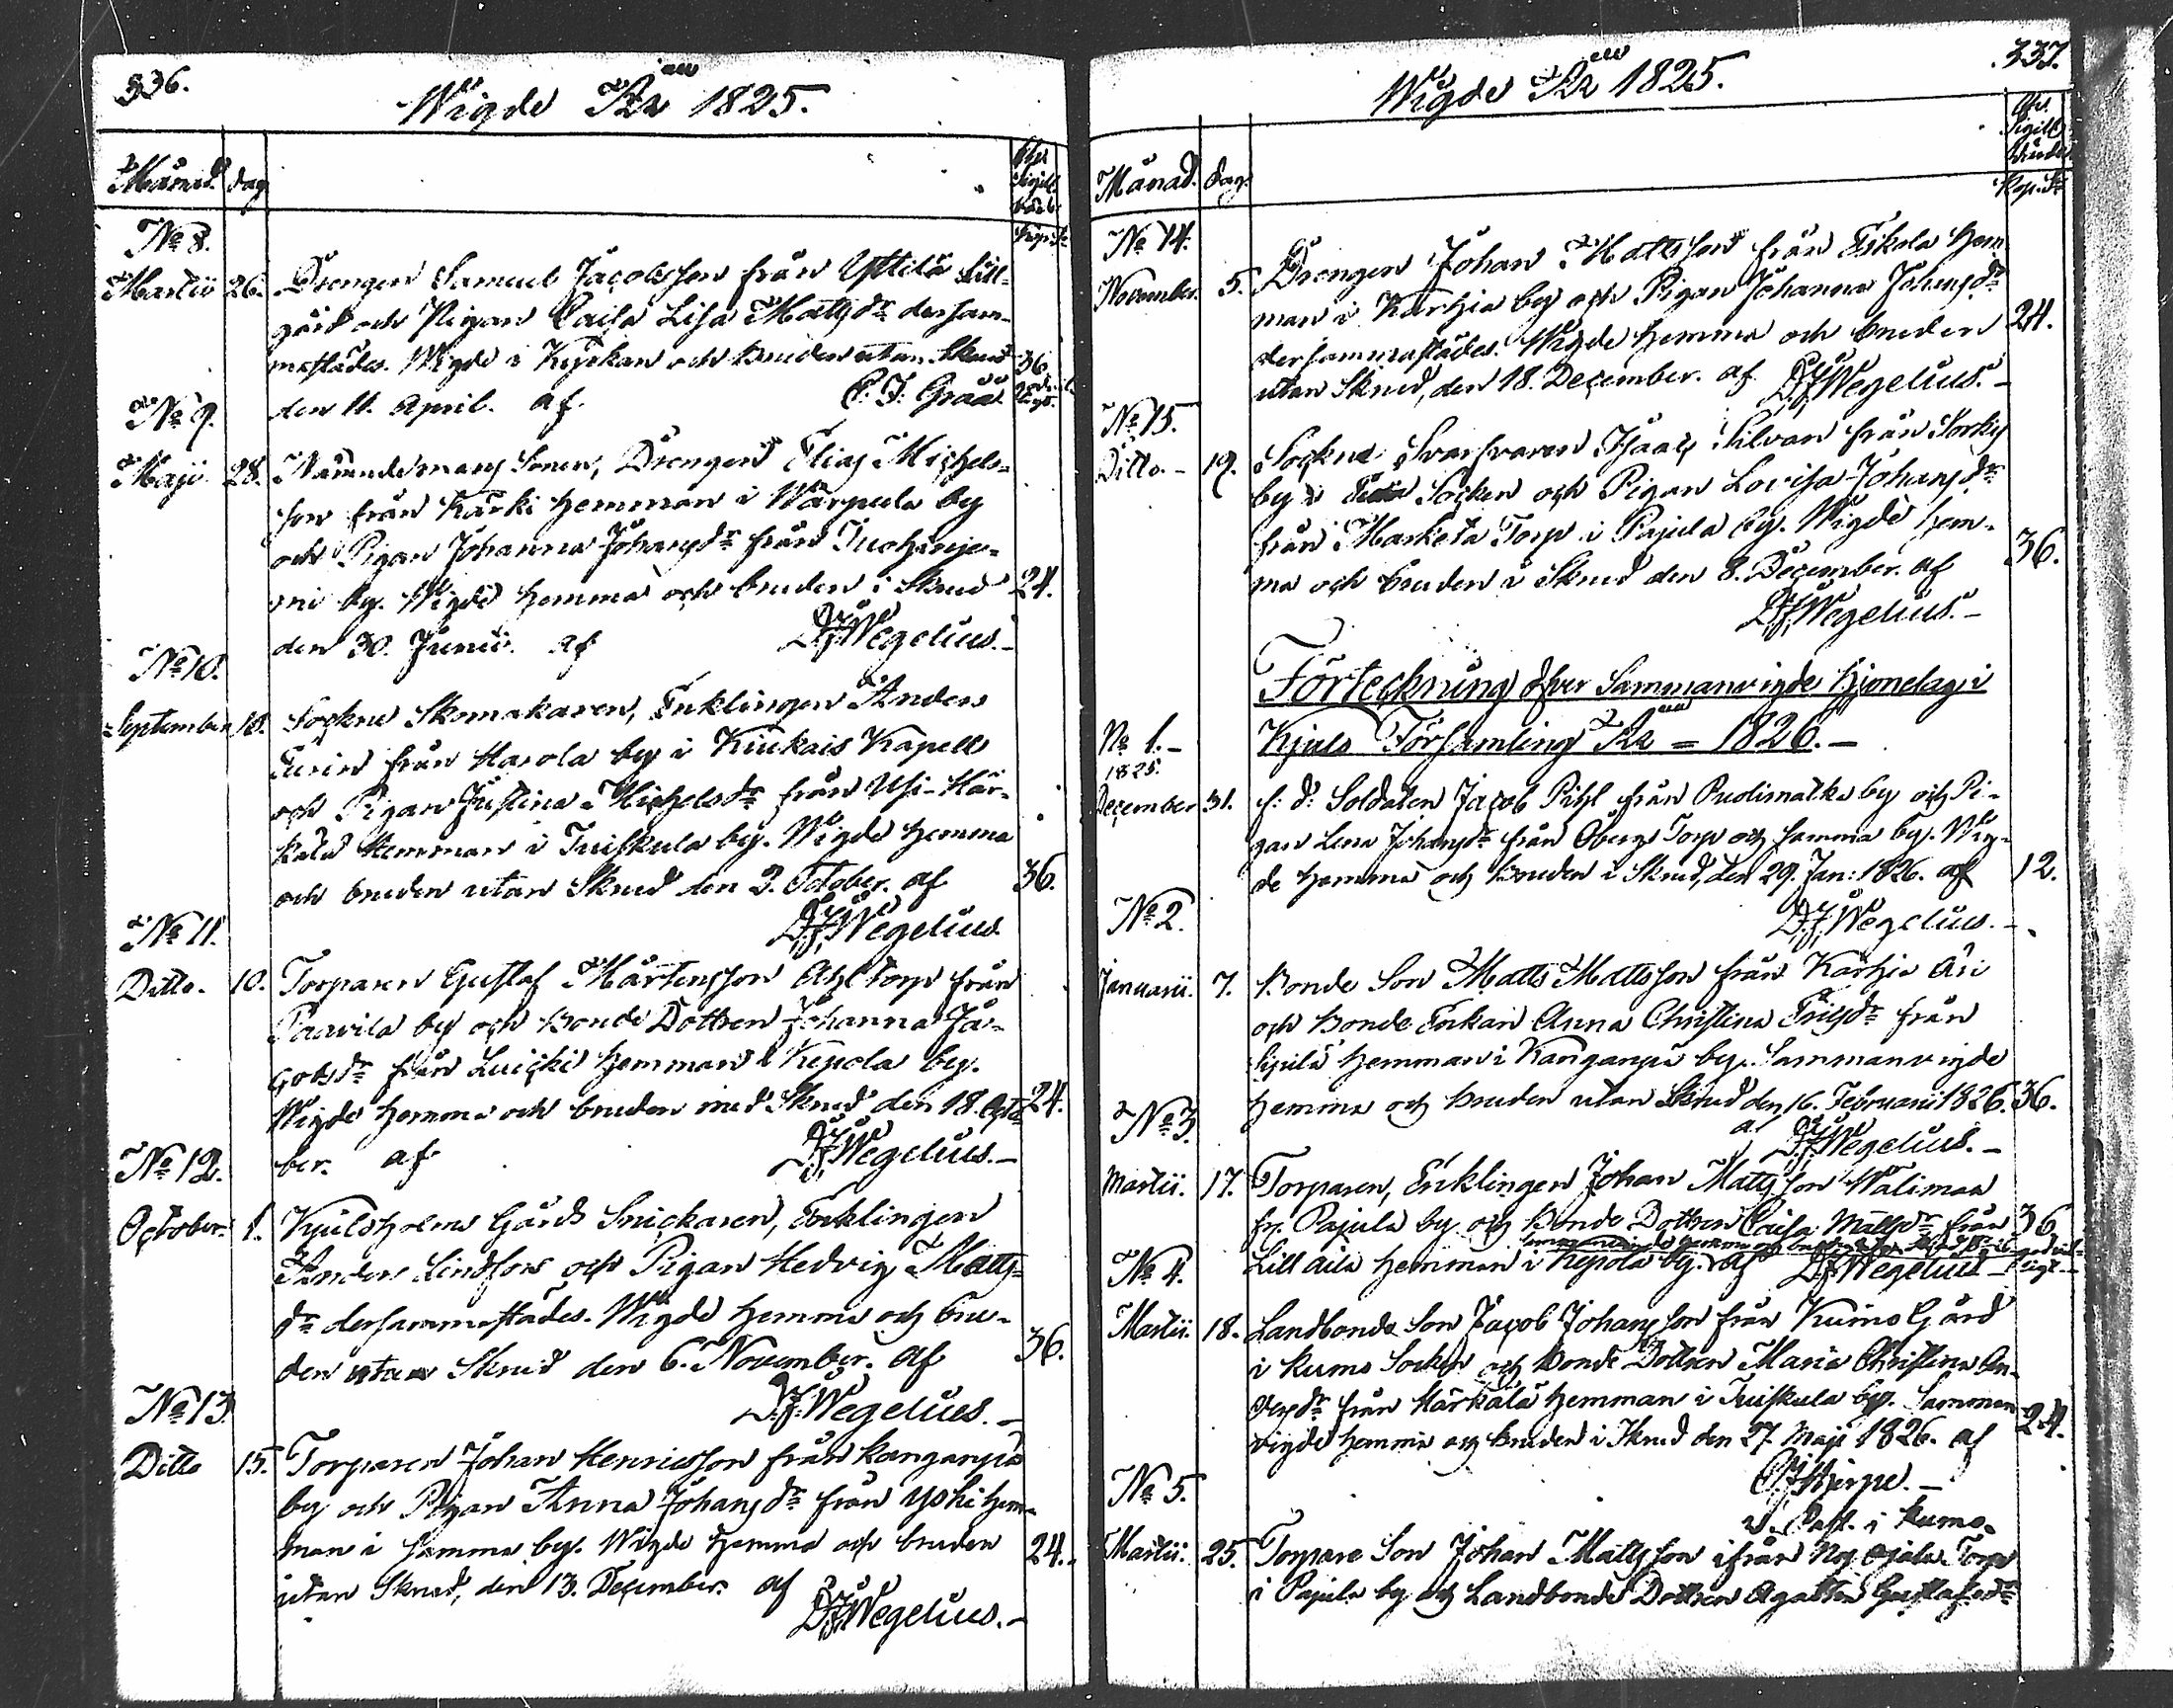 336.
Wigde År 1825.
Månad. dag
No 8.
Martii 26. Drengen Samuel Jacobsson från Yttilä Lill-
gård och Pigan Caisa Lisa Matsdr dersam-
mastädes. Wigde i Kyrkan och bruden utan Skrud 36
den 11. April. af C. F. Graà.
No 9.
Maji 28. Nämndemans Sonen, Drengen Elias Michels-
son från Kärki Hemman i Wärpula by
och Pigan Johanna Johansdr från
by. Wigde hemma och bruden i Skrud 24.
den 30. Junii. af DJWegelius.-
No 10.
September 10. Sockne Skomakaren, Enklingen Anders
från Harola by i Kiukais Kapell
och Pigan Justina Michelsdr från Usi-Här-
kälä Hemman i Tuiskula by. Wigde hemma
och bruden utan Skrud den 2. October. af 36.
DJWegelius
No 11.
Ditto. 10. Torparen Gustaf Mårtensson Ahl torp från
Paavila by och Bonde Dottren Johanna Ja-
cobsdr från Luicki Hemman i Kepola by.
Wigde hemma och bruden med Skrud den 18. Octo- 24.
ber. af DJWegelius.-
No 12.
October. 1. Kjulsholms Gårds Snickaren, Enklingen
Anders Lindfors och Pigan Hedvig Matts-
dr dersammastädes. Wigde hemma och bru-
den utan Skrud den 6. November. af 36.
DJWegelius.-
No 13.
Ditto 15. Torparen Johan Henricsson från Kanganpä
by och Pigan Anna Johansdr från Yski hem-
man i samma by. Wigde hemma och bruden 24.
utan Skrud, den 13. December. af
DJWegelius.-
337.
Wigde År 1825.
Månad. dag.
No 14.
November. 5. Drengen Johan Mattsson från Eskola Hem
man i Karhia by och Pigan Johanna Johansdr
dersammastädes. Wigde hemma och bruden 24.
utan Skrud, den 18. December. af DJWegelius.-
No 15.
Ditto.- 19. Sockne Svarfvaren Isaac Silvan från Sorky
by i Eura Socken och Pigan Lovisa Johansdr
från Marketa Torp i Pajula by. Wigde hem-
ma och bruden i Skrud den 8. December. af 36.
DJWegelius.-
Förteckning öfver Sammanvigde Hjonelag i
Kjulo Församling År - 1826.-
No 1.-
1825.
December 31. f: d: Soldaten Jacob Pihl från Pudimatka by och Pi-
gan Lena Johansdr från Öbergs Torp och samma by. Wig-
de hemma och bruden i Skrud, den 29. Jan: 1826. af 12.
DJWegelius.-
No 2.
Januarii. 7. Bonde Son Matts Mattsson från Karhia Äri
och Bonde Enkan Anna Christina Ericsdr från
Hemman i Kanganpä by. Sammanvigde
hemma och bruden utan Skrud den 16. Februarii 1826. 36.
af DJWegelius.-
No 3.
Martii. 17. Torparen, Enklingen Johan Mattsson Wälimaa
fr. Pajula by och Bonde Dottren Caisa Mattsdr från 36
Lill Aila Hemman i Kepola by. af DJWegelius-
No 4.
Martii. 18. Landbonde Son Jacob Johansson från Kumo Gård
i Kumo Socken och Bonde Dottren Maria Christina An-
dersdr från Härkälä Hemman i Tuiskula by. Samman-
vigde hemma och bruden i Skrud den 27 Maji 1826. af 24.
v. Past. i Kumo.
No 5.
Martii. 25. Torpare Son Johan Mattsson ifrån Torp
i Pajula by och Landbonde Dottren Agatha Gustafsdr